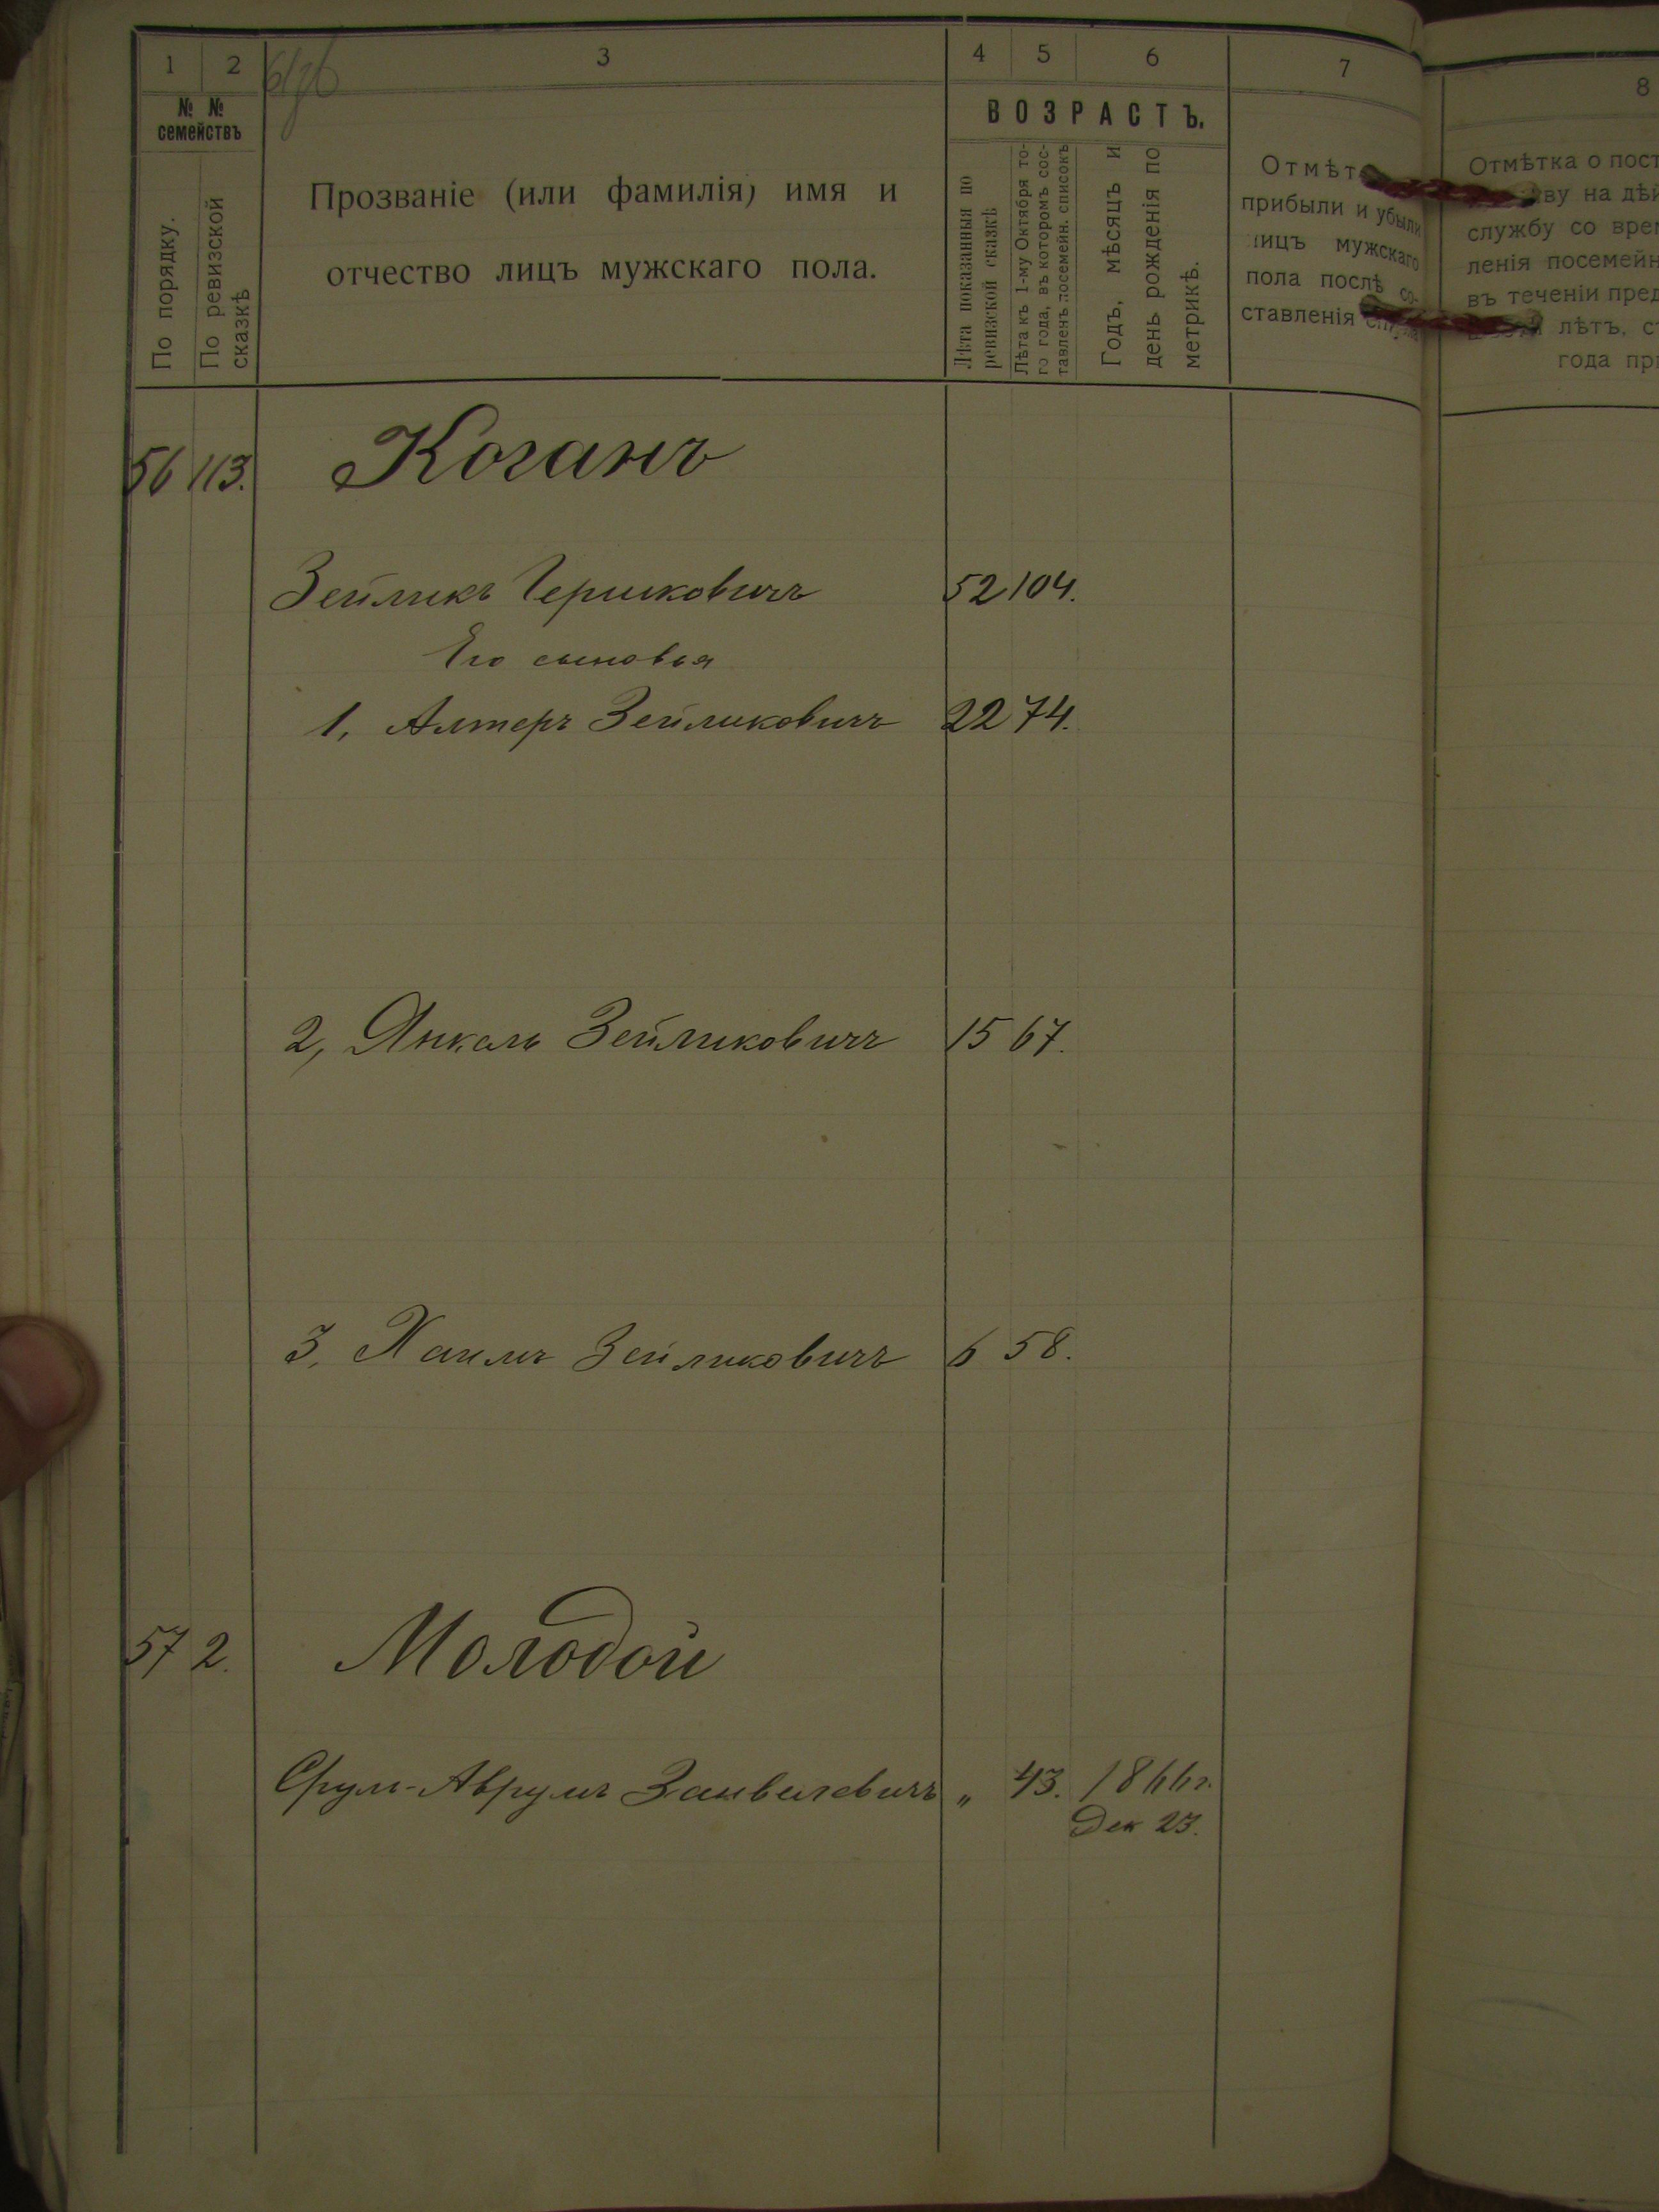 1 2 3 4 5 6 7 8
№ № семействъ
По порядку.
По ревизской сказкѣ
Прозваніе (или фамилія) имя и
отчество лицъ мужскаго пола.
ВОЗРАСТЪ.
Лѣта показанныя по
ревизской сказкѣ
Лѣта къ 1-му Октября то-
го года, въ которомъ сос-
тавленъ посемейн. списокъ
Годъ, мѣсяцъ и
день рожденія по
метрикѣ.
Отмѣт
прибыли и убыли
лицъ мужскаго
пола послѣ со-
ставленія
Отмѣтка о пост
ву на дѣй
службу со врем
ленія посемейн
въ теченіи пред
лѣтъ, с
года пр
56 113. Коганъ
Зейликъ Гершковичъ 52 104.
Его сыновья
1, Алтеръ Зейликовичъ 22 74.
2, Янкель Зейликовичъ 15 67.
3, Хаимъ Зейликовичъ 6 58.
57 2. Молодой
Срулъ-Аврумъ Занвелевичъ „ 43. 1866 г.
Дек 23.